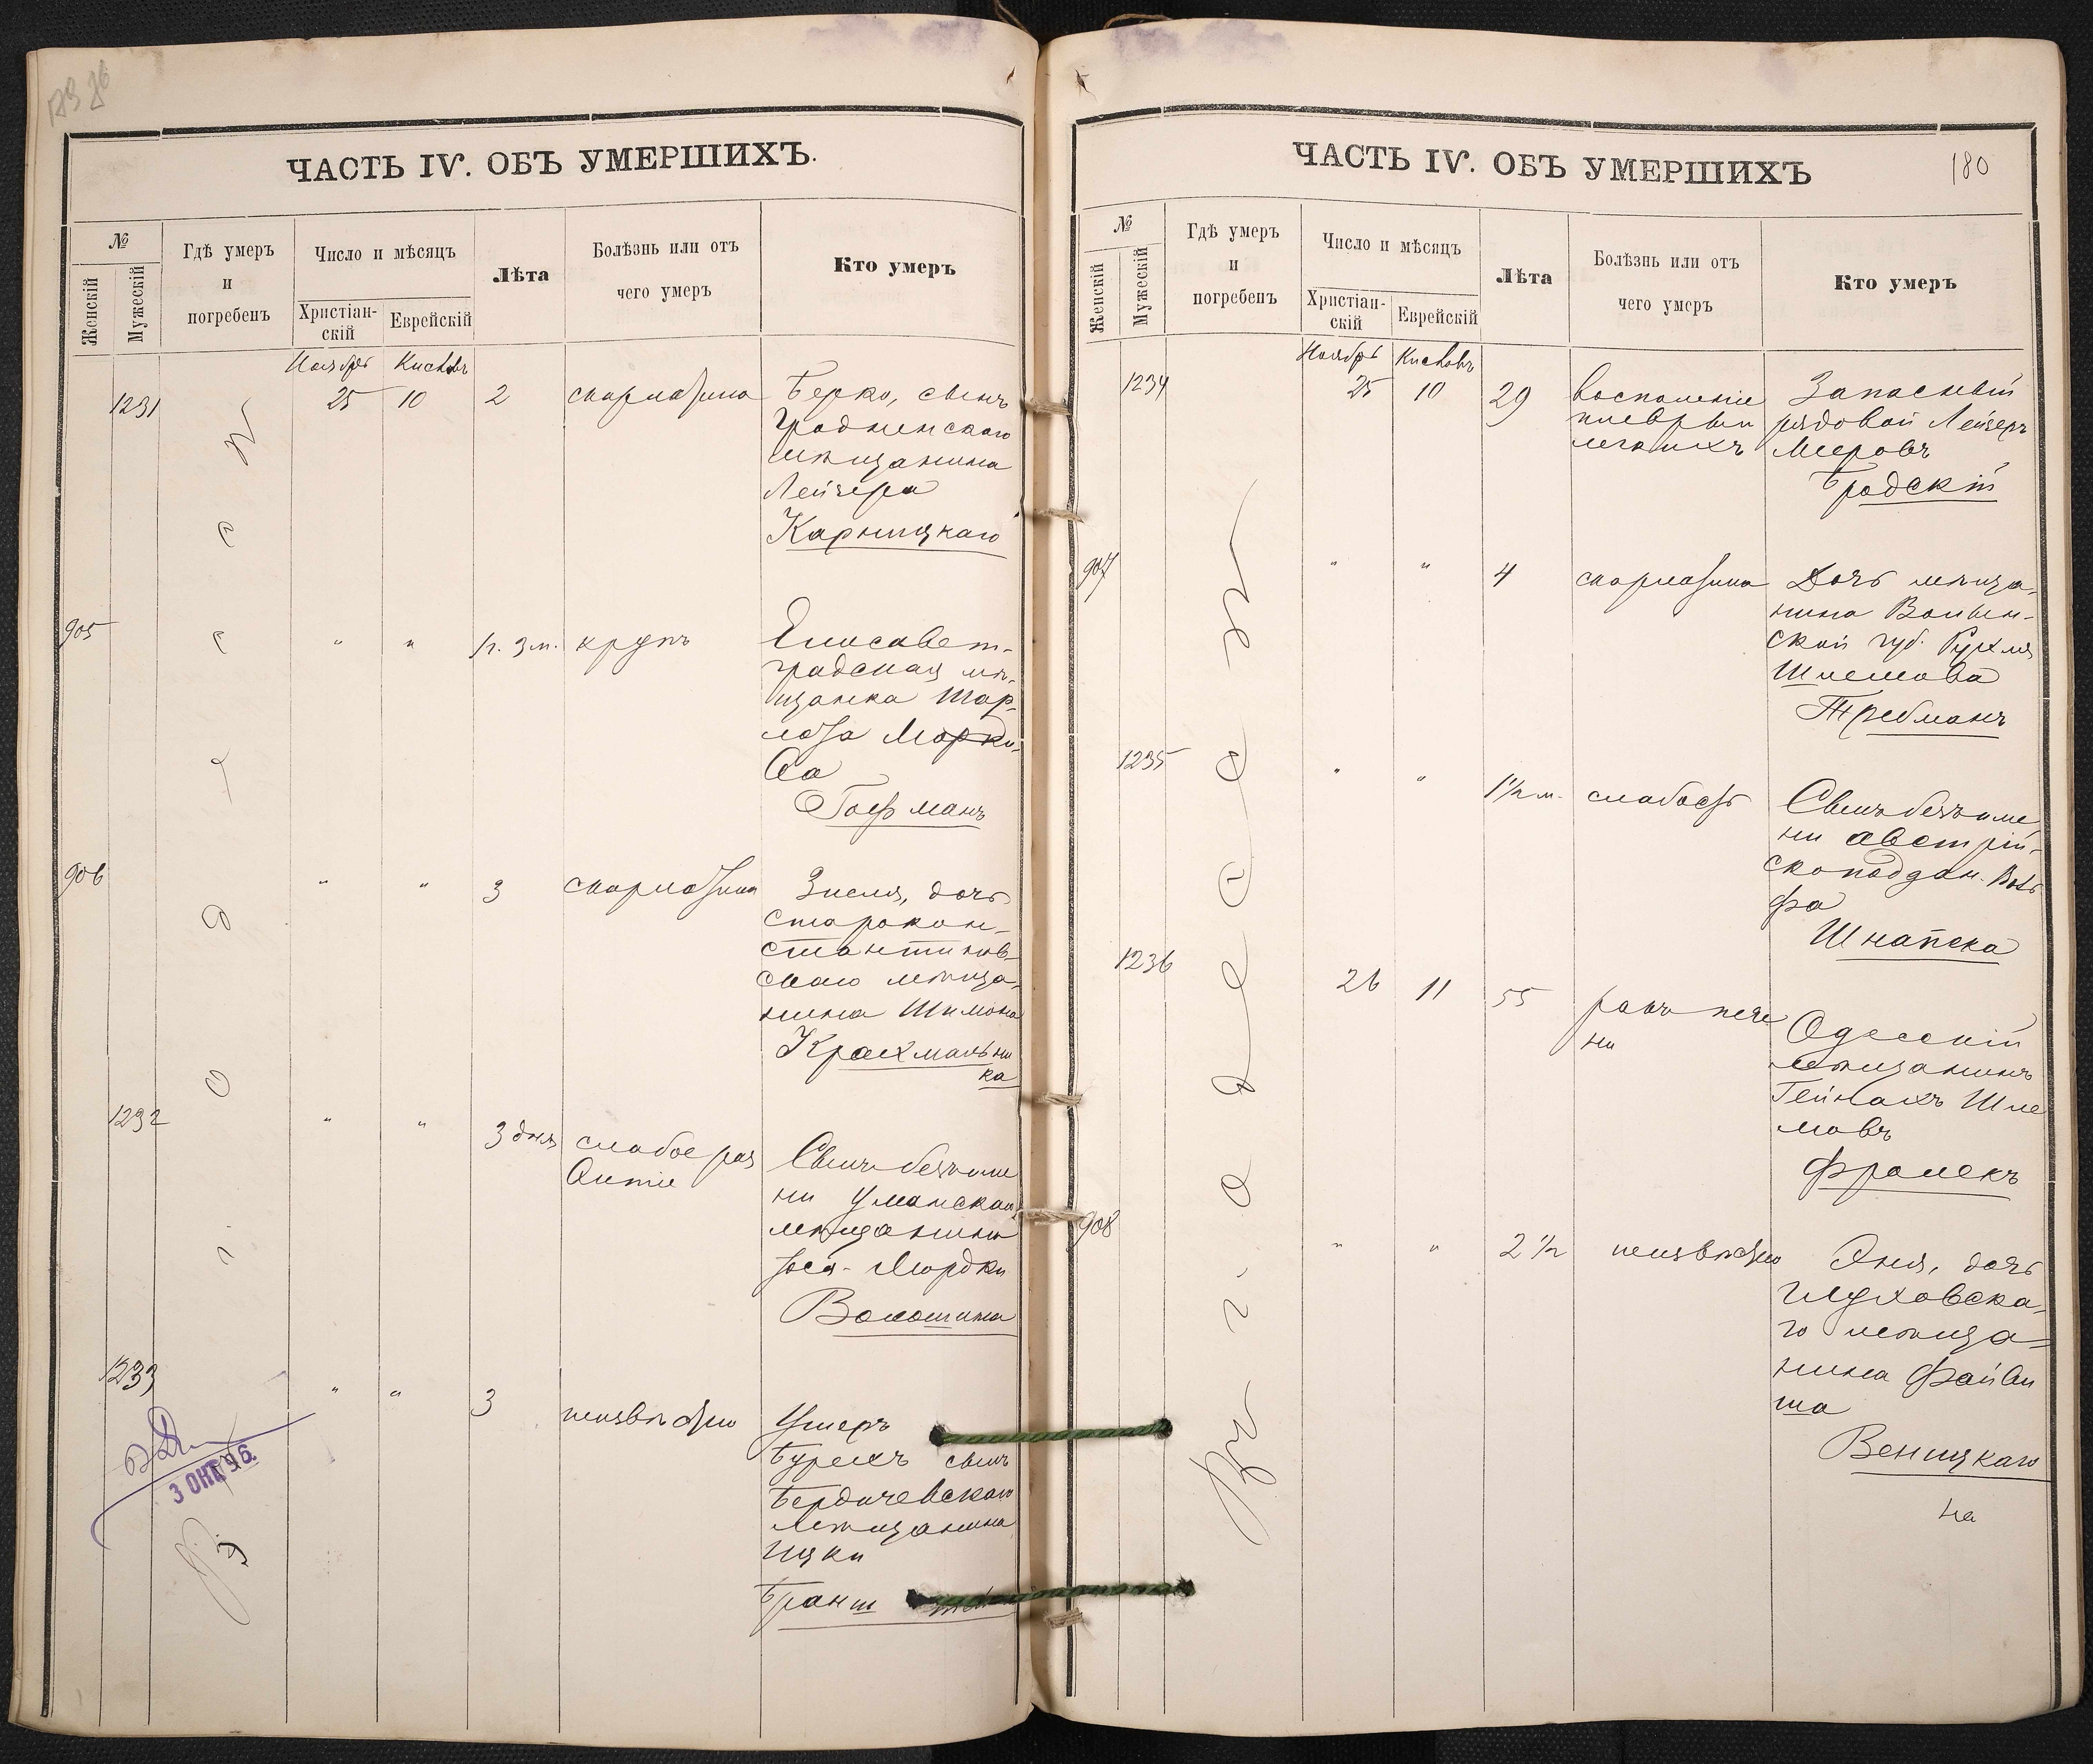 ЧАСТЬ IV. ОБЪ УМЕРШИХЪ.
№
Женскій
Мужескій
Гдѣ умеръ
и
погребенъ
Число и мѣсяцъ
Христіан-
скій
Еврейскій
Лѣта
Болѣзнь или отъ
чего умеръ
Кто умеръ
Ноябрь Кислевъ
1231 25 10 2 скарлатина Берко, сынъ
Гродненскаго
мѣщанина
Лейзера
Карницкаго
905 " " 1 г. 3 м. крупъ Елисавет-
градская мѣ-
щанка Шар-
лота Морд
ва
Гофманъ
906 " " 3 скарлатина Зисля, дочь
старокон-
стантинов-
скаго мѣща-
нина Шимона
Крахмальни
ка
1232 " " 3 дня слабое раз
витіе
Сынъ безъ име
ни Уманскаго
мѣщанина
Іося-Мордки
Волошина
1233 " " 3 неизвѣстно Умеръ
Бурехъ сынъ
Бердичевскаго
мѣщанина
Ицки
Бранш
Въ Одессѣ
3 ОКТ. 96.
ЧАСТЬ IV. ОБЪ УМЕРШИХЪ
180
№
Женскій
Мужескій
Гдѣ умеръ
и
погребенъ
Число и мѣсяцъ
Христіан-
скій
Еврейскій
Лѣта
Болѣзнь или отъ
чего умеръ
Кто умеръ
Ноябрь Кислевъ
1234 25 10 29 воспаленіе Запасный
плевры и рядовой Лейзеръ
легкихъ Мееровъ
Бродскій
907 " " 4 скарлатина Дочь мѣща-
нина Волын-
ской губ. Рухля
Шлемова
Требманъ
1235 " " 1½ м. слабость Сынъ безъ име
ни австрій-
скоподдан. Воль
фа
Шнапека
1236 26 11 55 ракъ пече
ни
Одесскій
мѣщанинъ
Гейнахъ Шле
мовъ
Фролекъ
908 " " 2½ неизвѣстно Хня, дочь
Глуховска-
го мѣща-
нина Файви
ша
Веницкаго
на
Въ г. Одессѣ